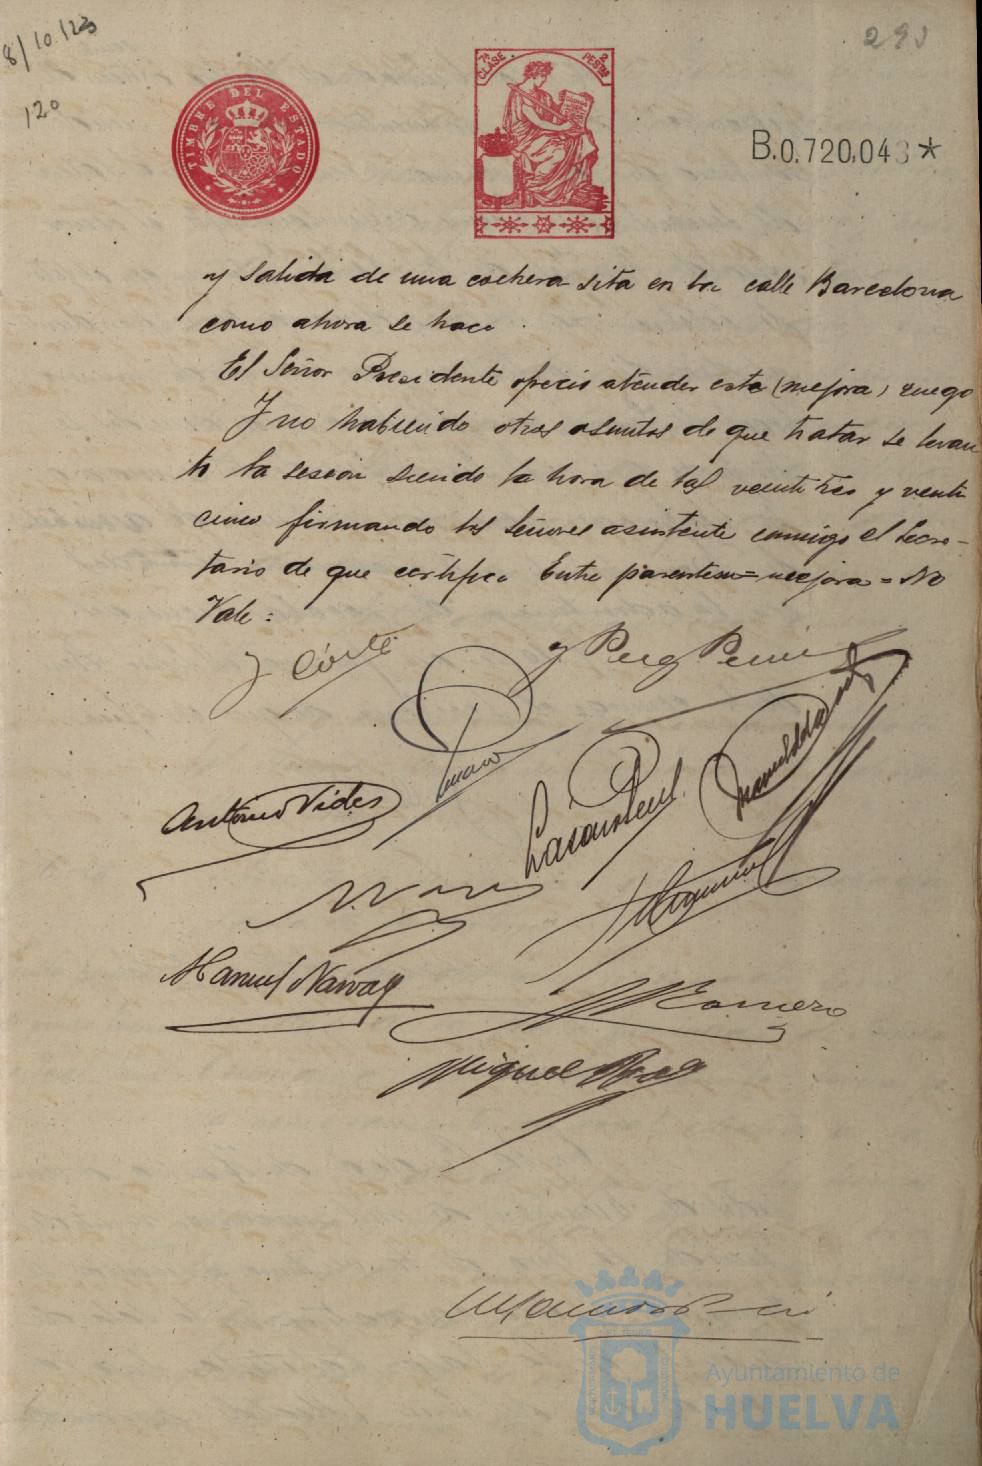 8/10/23
120
TIMBRE DEL ESTADO
7ª CLASE 2 PESTAS
B.0.720.043*
y salida de una cochera sita en la calle Barcelona
como ahora se hace.
El Señor Presidente ofrecio atender este (mejora) ruego
Y no habiendo otros asuntos de que tratar se levan
to la sesion siendo la hora de las veintitres y venti
cinco firmando los Señores asistente conmigo el Secre-
tario de que certifico Entre parentesis = mejora = No
Vale =
Antonio Vides
Manuel Narvaez
Romero
Miguel
Ayuntamiento de
HUELVA